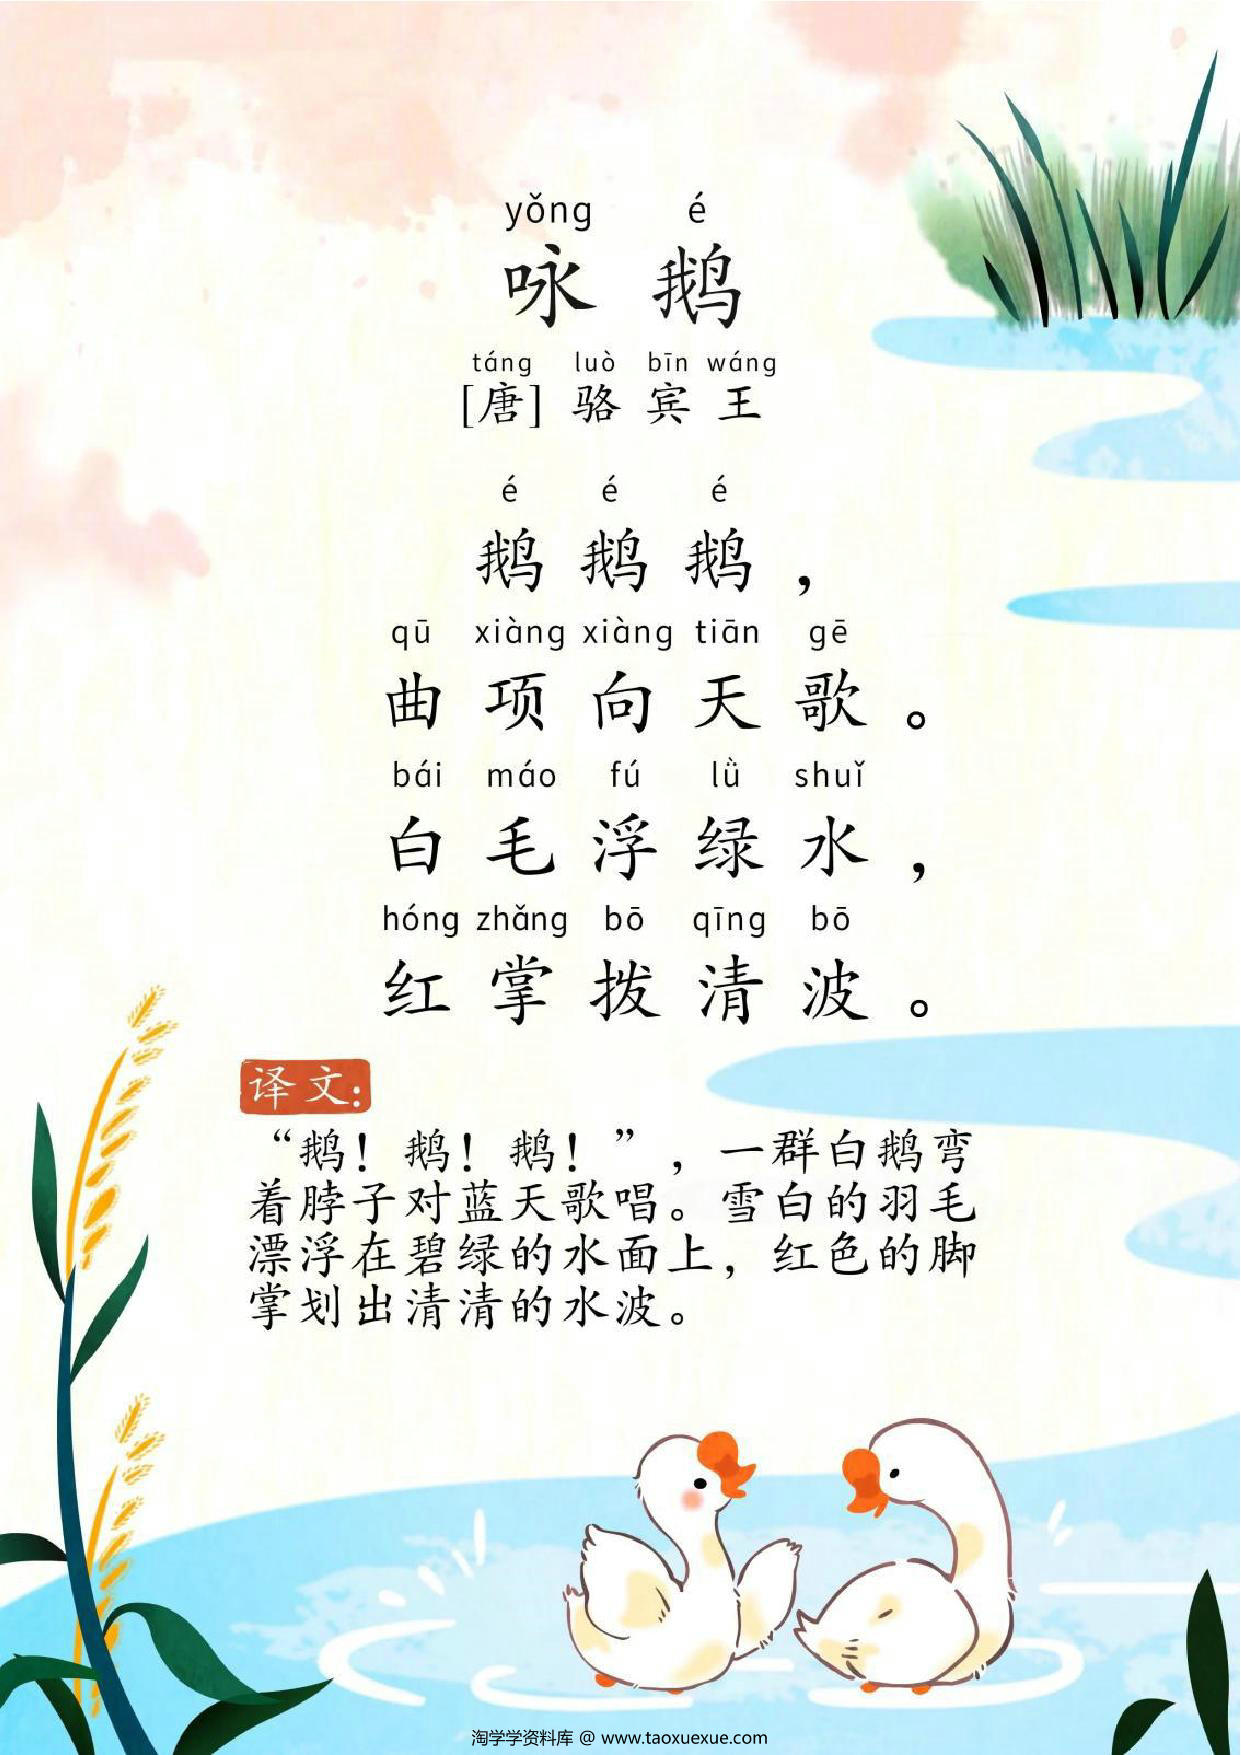 yǒng é
咏 鹅
táng luò bīn wáng
[唐] 骆 宾 王
é é é
鹅 鹅 鹅 ，
qū xiàng xiàng tiān gē
曲 项 向 天 歌 。
bái máo fú lǜ shuǐ
白 毛 浮 绿 水 ，
hóng zhǎng bō qīng bō
红 掌 拨 清 波 。
译文：
“鹅！鹅！鹅！”，一群白鹅弯
着脖子对蓝天歌唱。雪白的羽毛
漂浮在碧绿的水面上，红色的脚
掌划出清清的水波。
淘学学资料库 @ www.taoxuexue.com